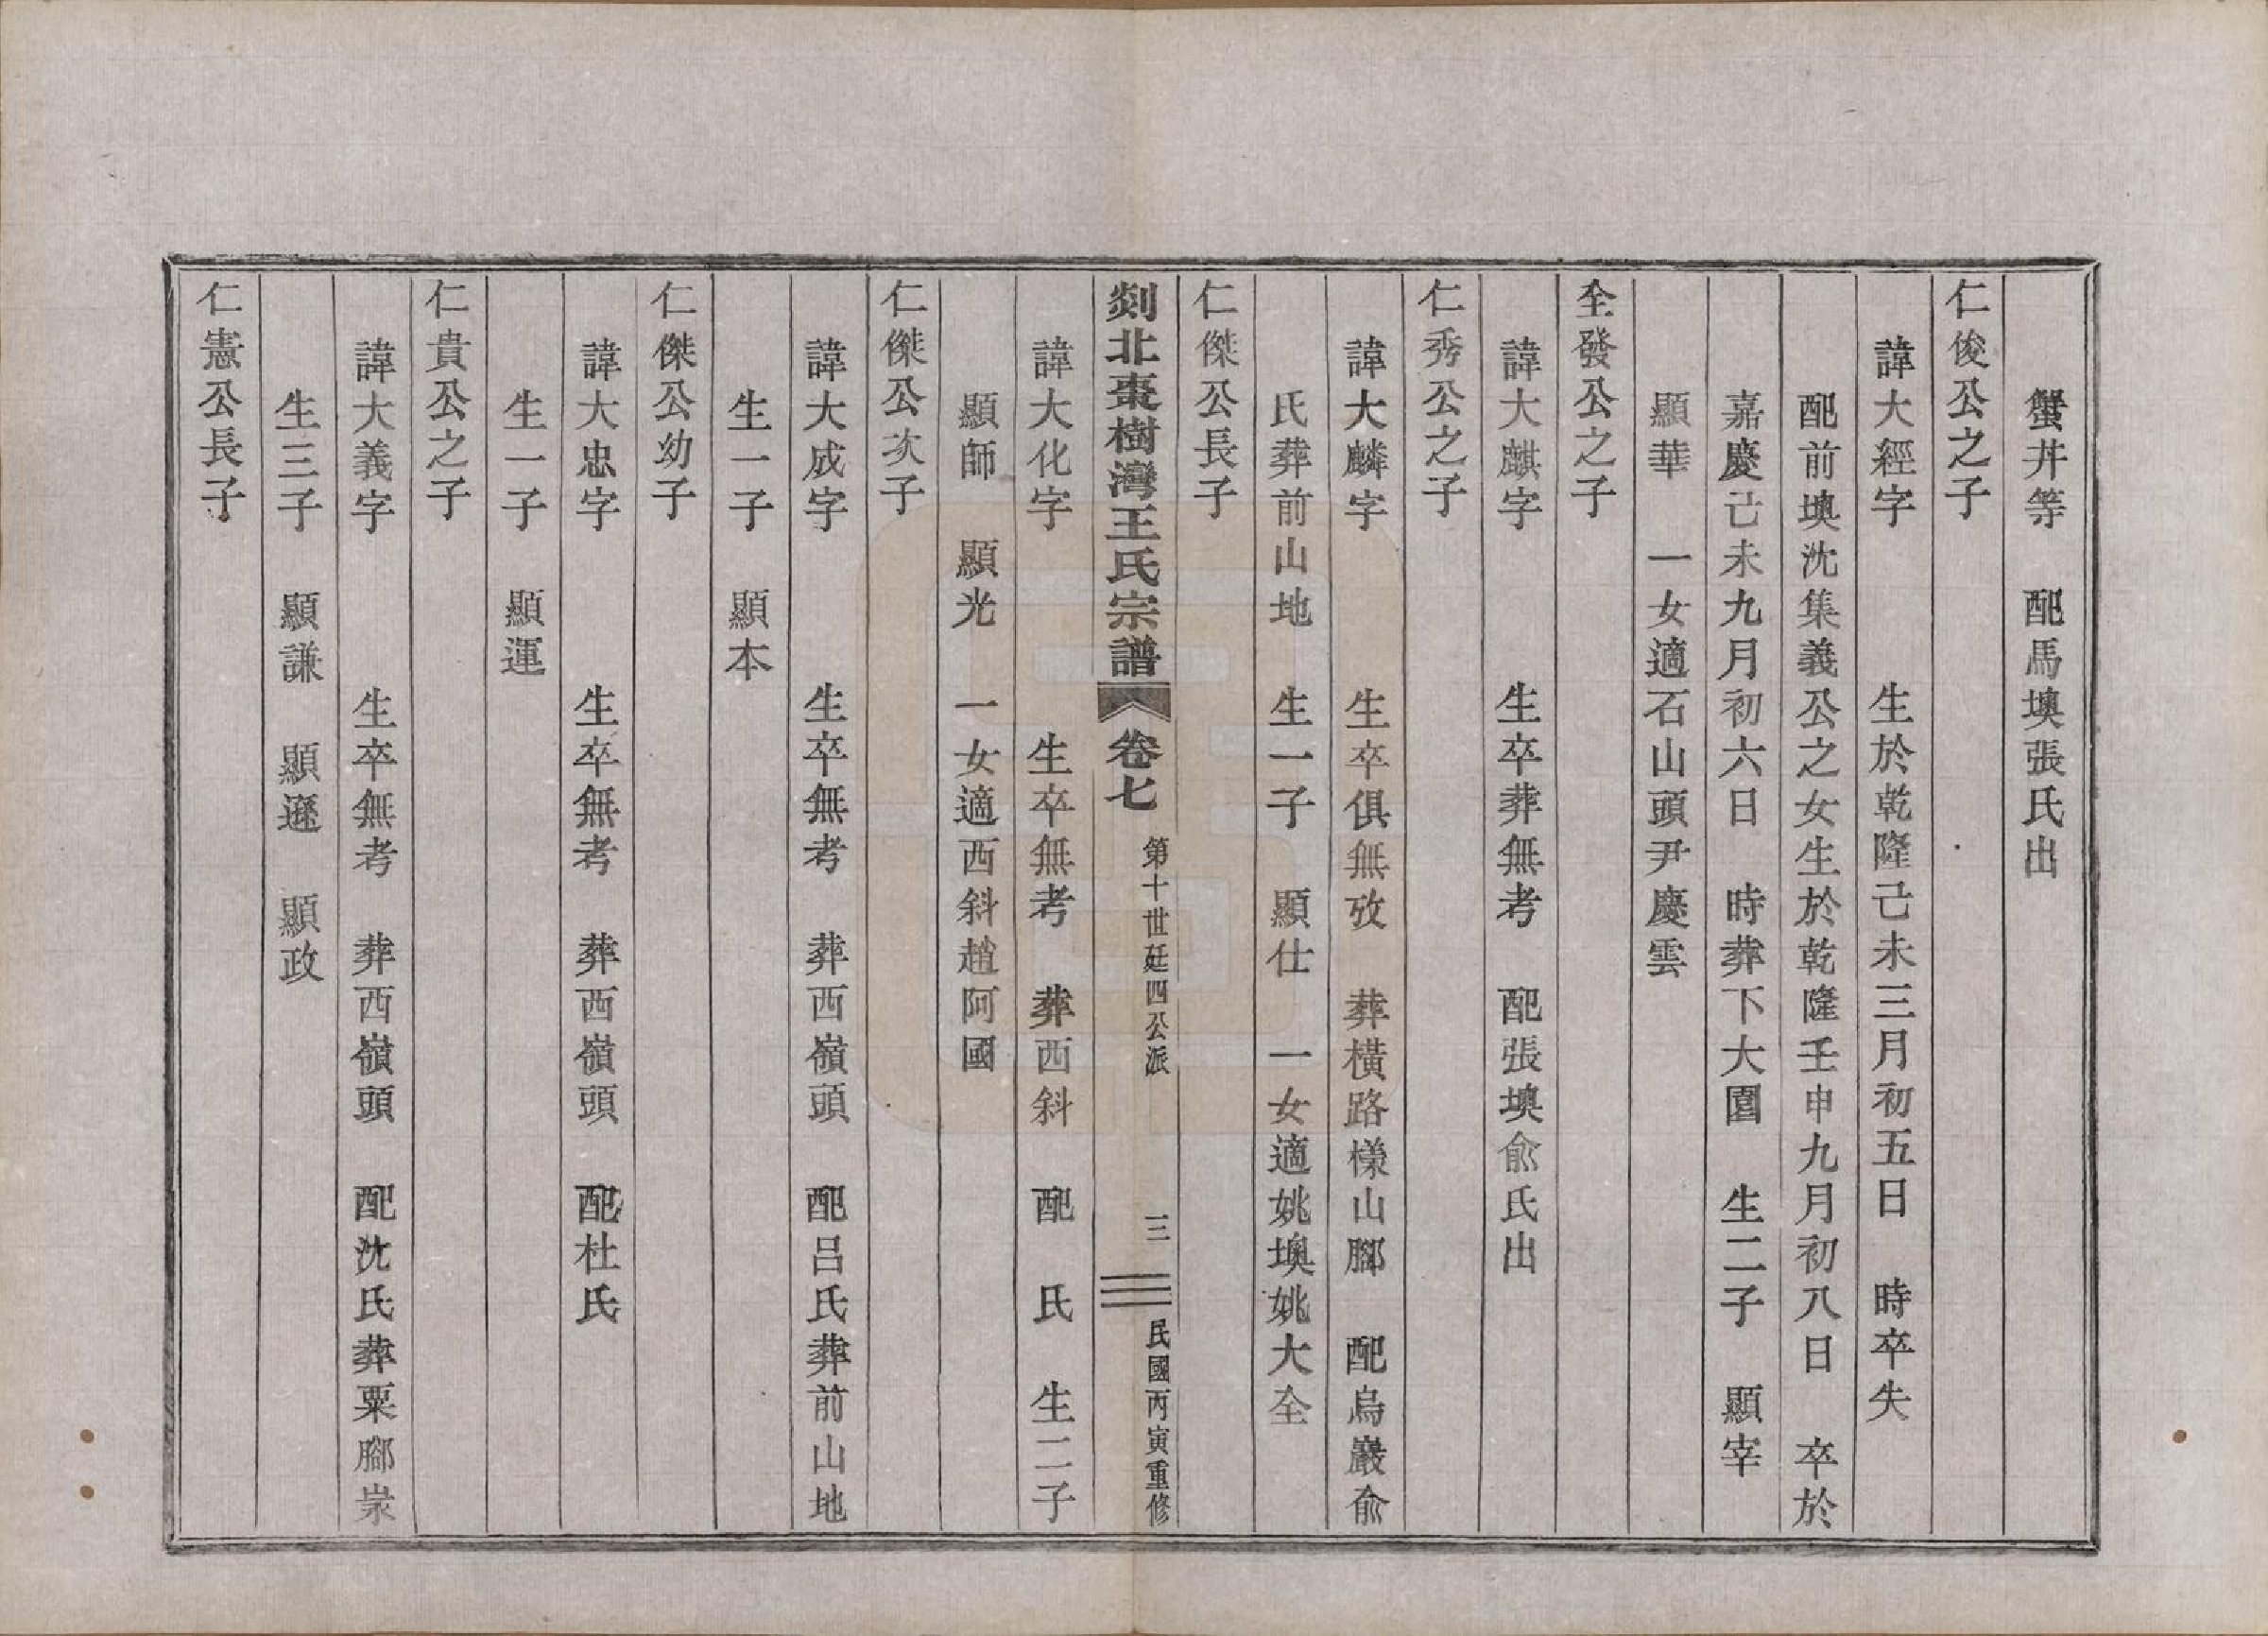 蟹井等　配馬墺張氏出
仁俊公之子
諱大經字　生於乾隆己未三月初五日　時卒失
配前墺沈集義公之女生於乾隆壬申九月初八日　卒於
嘉慶己未九月初六日　時葬下大園　生二子　顯宰
顯華　一女適石山頭尹慶雲
全發公之子
諱大麒字　生卒葬無考　配張墺俞氏出
仁秀公之子
諱大麟字　生卒俱無攷　葬橫路樣山腳　配烏巖俞
氏葬前山地　生一子　顯仕　一女適姚墺姚大全
仁傑公長子
剡北棗樹灣王氏宗譜　卷七　第十世廷四公派　三　民國丙寅重修
諱大化字　生卒無考　葬西斜　配　氏　生二子
顯師　顯光　一女適西斜趙阿國
仁傑公次子
諱大成字　生卒無考　葬西嶺頭　配呂氏葬前山地
生一子　顯本
仁傑公幼子
諱大忠字　生卒無考　葬西嶺頭　配杜氏
生一子　顯運
仁貴公之子
諱大義字　生卒無考　葬西嶺頭　配沈氏葬粟腳
生三子　顯謙　顯遜　顯政
仁憲公長子